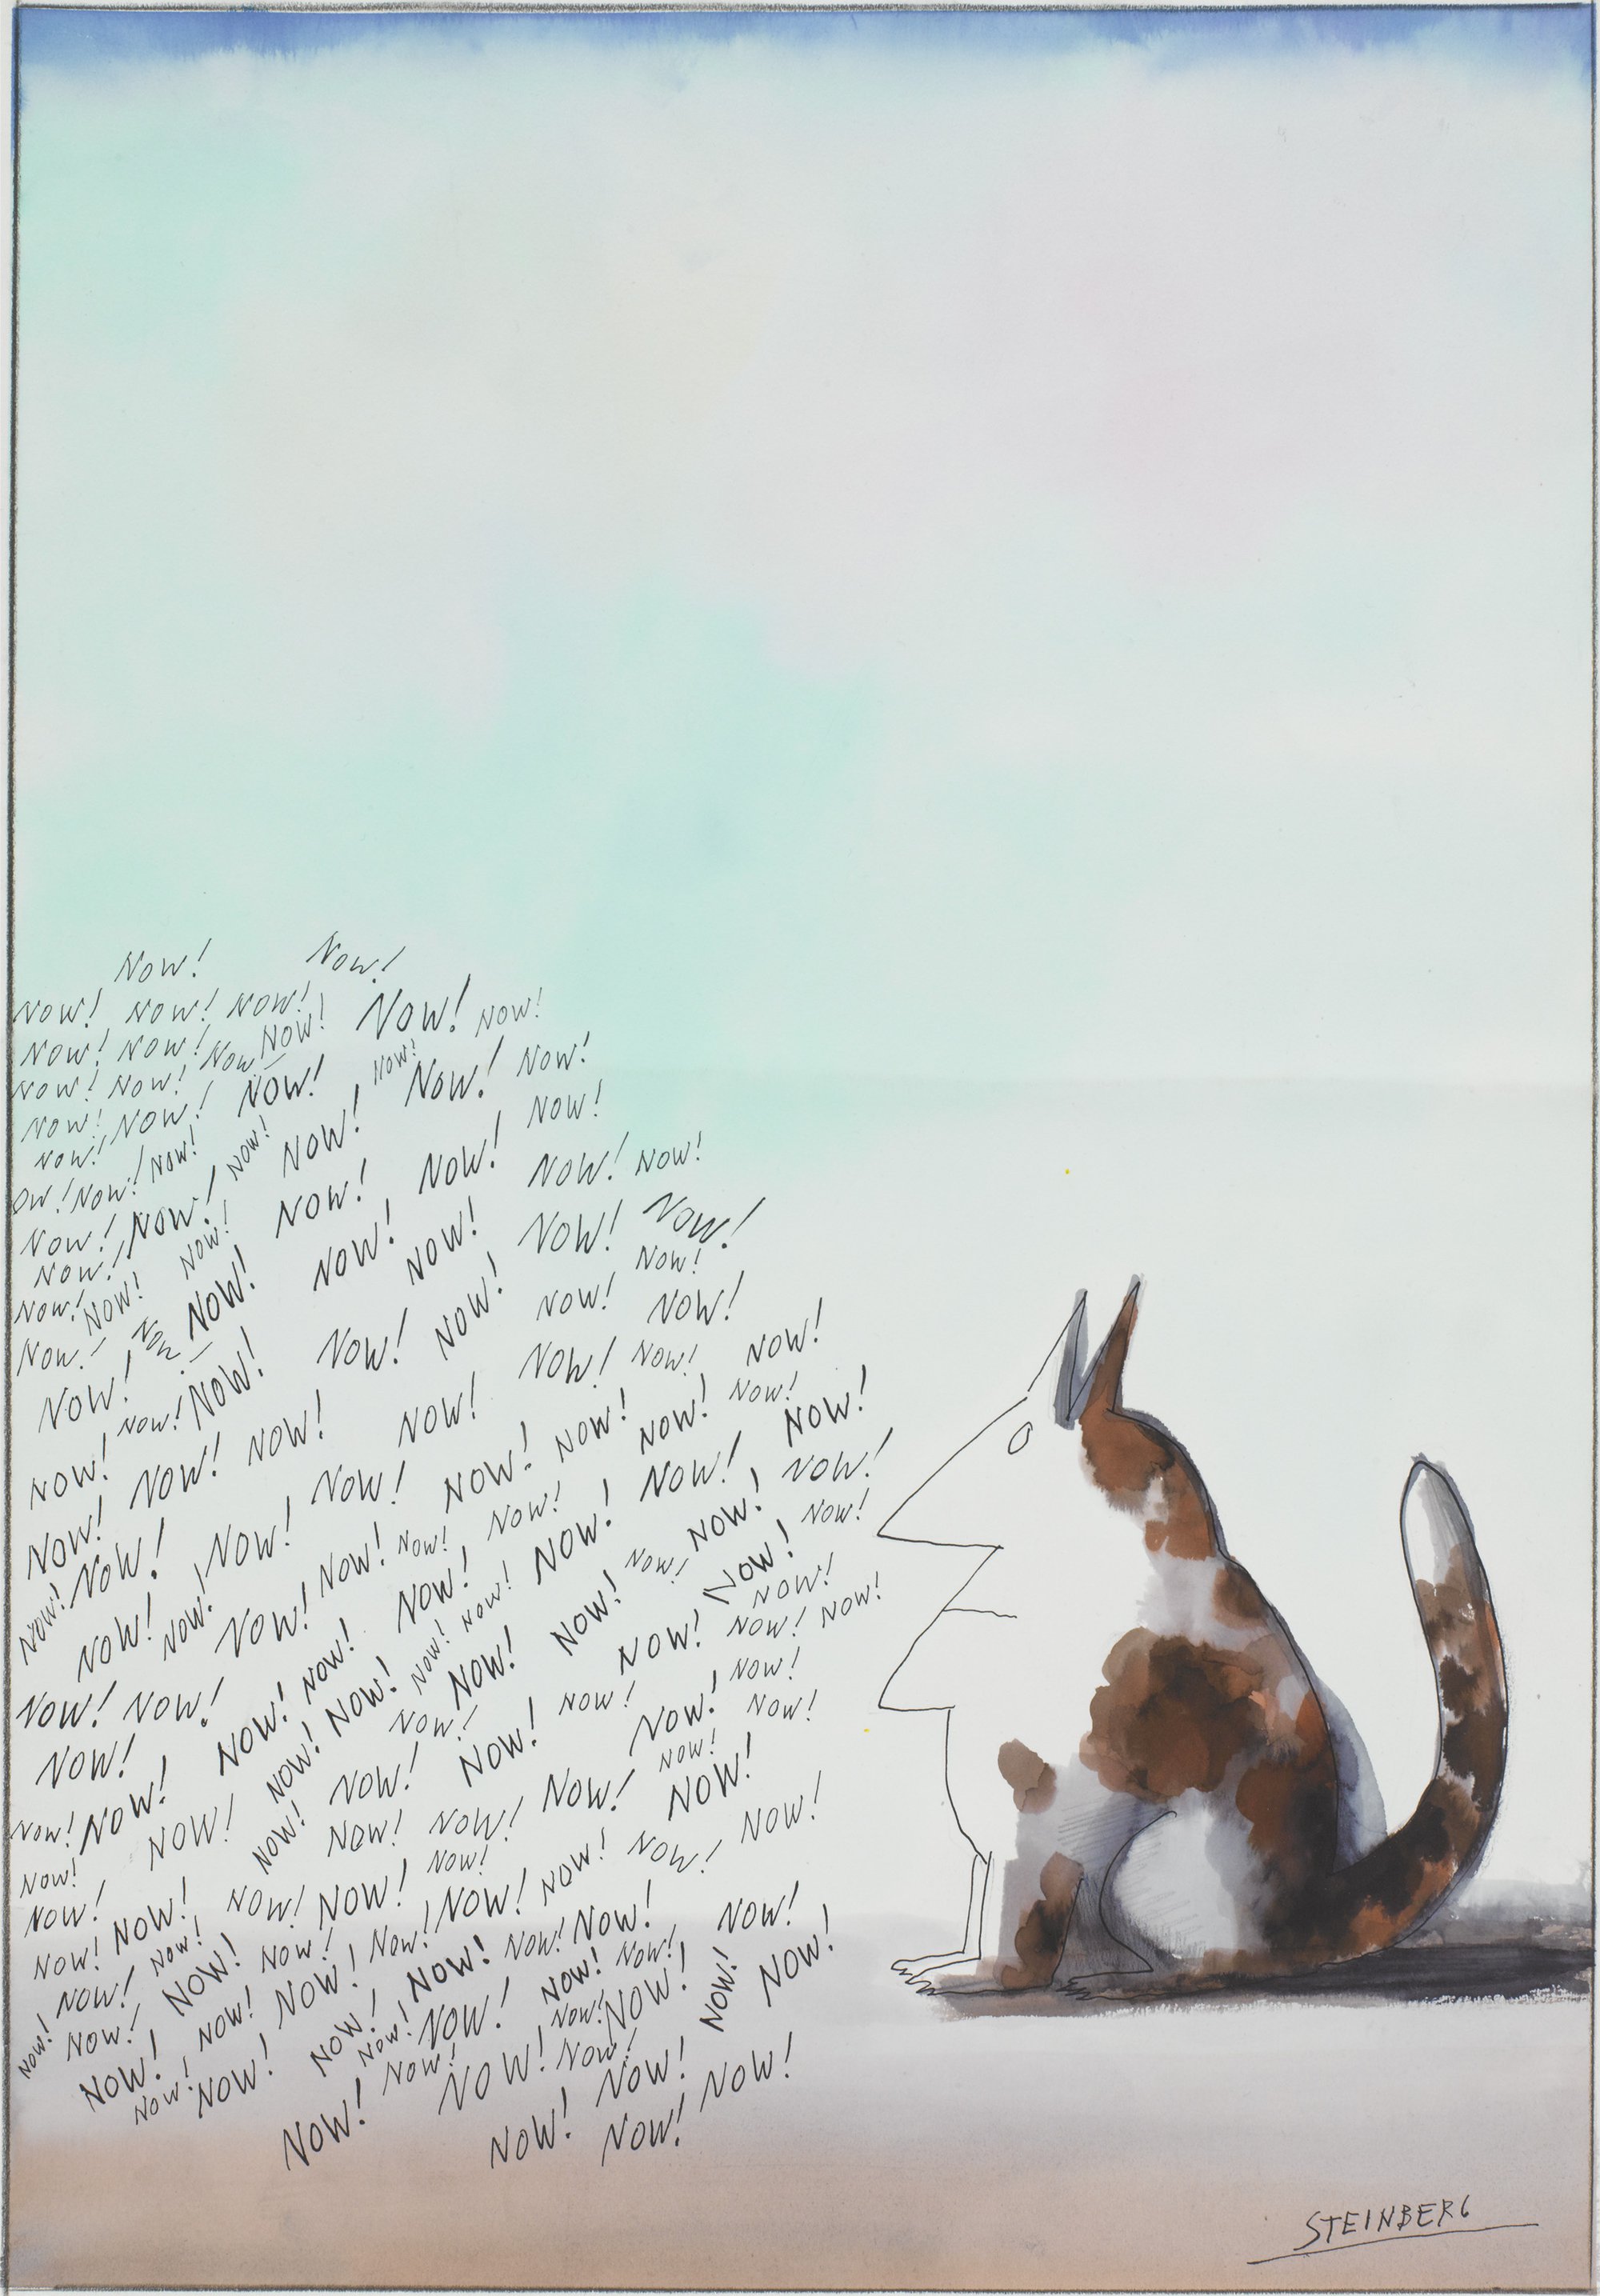 NOW! NOW!
NOW! NOW! NOW! NOW! NOW!
NOW! NOW! NOW! NOW!
NOW! NOW! NOW! NOW! NOW! NOW!
NOW! NOW! NOW! NOW!
NOW! NOW! NOW! NOW! NOW! NOW!
OW! NOW! NOW! NOW!
NOW! NOW! NOW! NOW! NOW! NOW!
NOW! NOW! NOW! NOW!
NOW! NOW! NOW! NOW! NOW! NOW!
NOW! NOW! NOW! NOW! NOW! NOW!
NOW! NOW! NOW! NOW! NOW! NOW! NOW!
NOW! NOW! NOW! NOW! NOW! NOW! NOW!
NOW! NOW! NOW! NOW! NOW! NOW! NOW!
NOW! NOW! NOW! NOW! NOW! NOW! NOW! NOW!
NOW! NOW! NOW! NOW! NOW! NOW! NOW! NOW!
NOW! NOW! NOW! NOW! NOW! NOW! NOW! NOW!
NOW! NOW! NOW! NOW! NOW! NOW! NOW!
NOW! NOW! NOW! NOW! NOW! NOW! NOW!
NOW! NOW! NOW! NOW! NOW! NOW! NOW!
NOW! NOW! NOW! NOW! NOW! NOW! NOW!
NOW! NOW! NOW! NOW! NOW! NOW! NOW!
NOW! NOW! NOW! NOW! NOW! NOW! NOW!
NOW! NOW! NOW! NOW! NOW! NOW! NOW!
NOW! NOW! NOW! NOW! NOW! NOW! NOW!
NOW! NOW! NOW! NOW! NOW! NOW!
NOW! NOW! NOW! NOW! NOW!
NOW! NOW! NOW!
STEINBERG